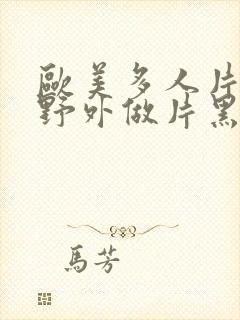 歐美多人片
野外做片黑
馬芳